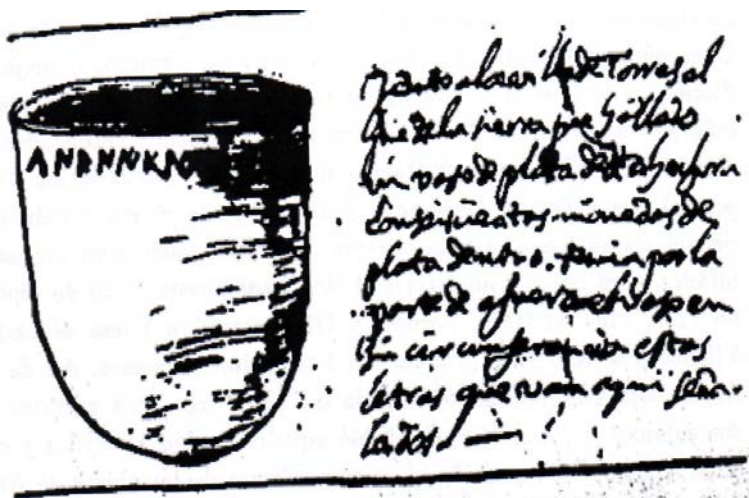 Junto a la villa de Torres al
Pie de la sierra fue hallado
un vaso de plata de esta hechura
Con monedas de
plata dentro. tenia por la
parte de afuera el vaso en
su circunferencia estas
letras que van aqui seña-
lados